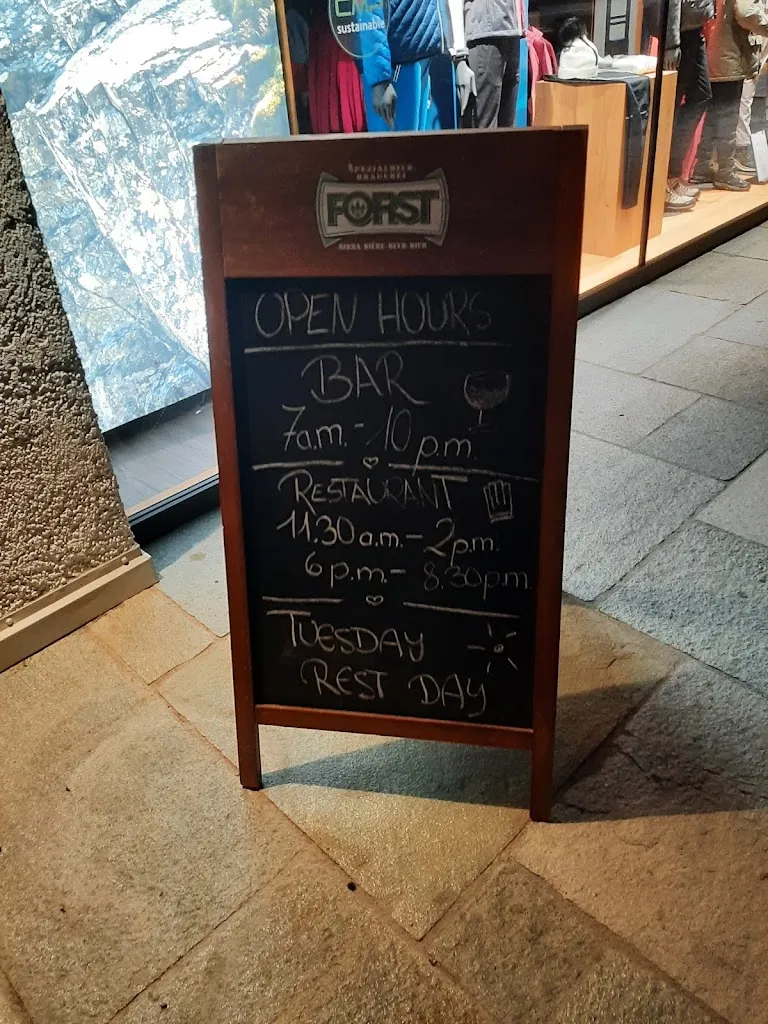 sustainable
SPEZIALBIER
BRAUEREI
FORST
BIRRA BIÈRE BEER BIER
OPEN HOURS
BAR
7a.m. - 10 p.m.
RESTAURANT
11.30 a.m. - 2p.m.
6 p.m. - 8.30pm.
TUESDAY
REST DAY